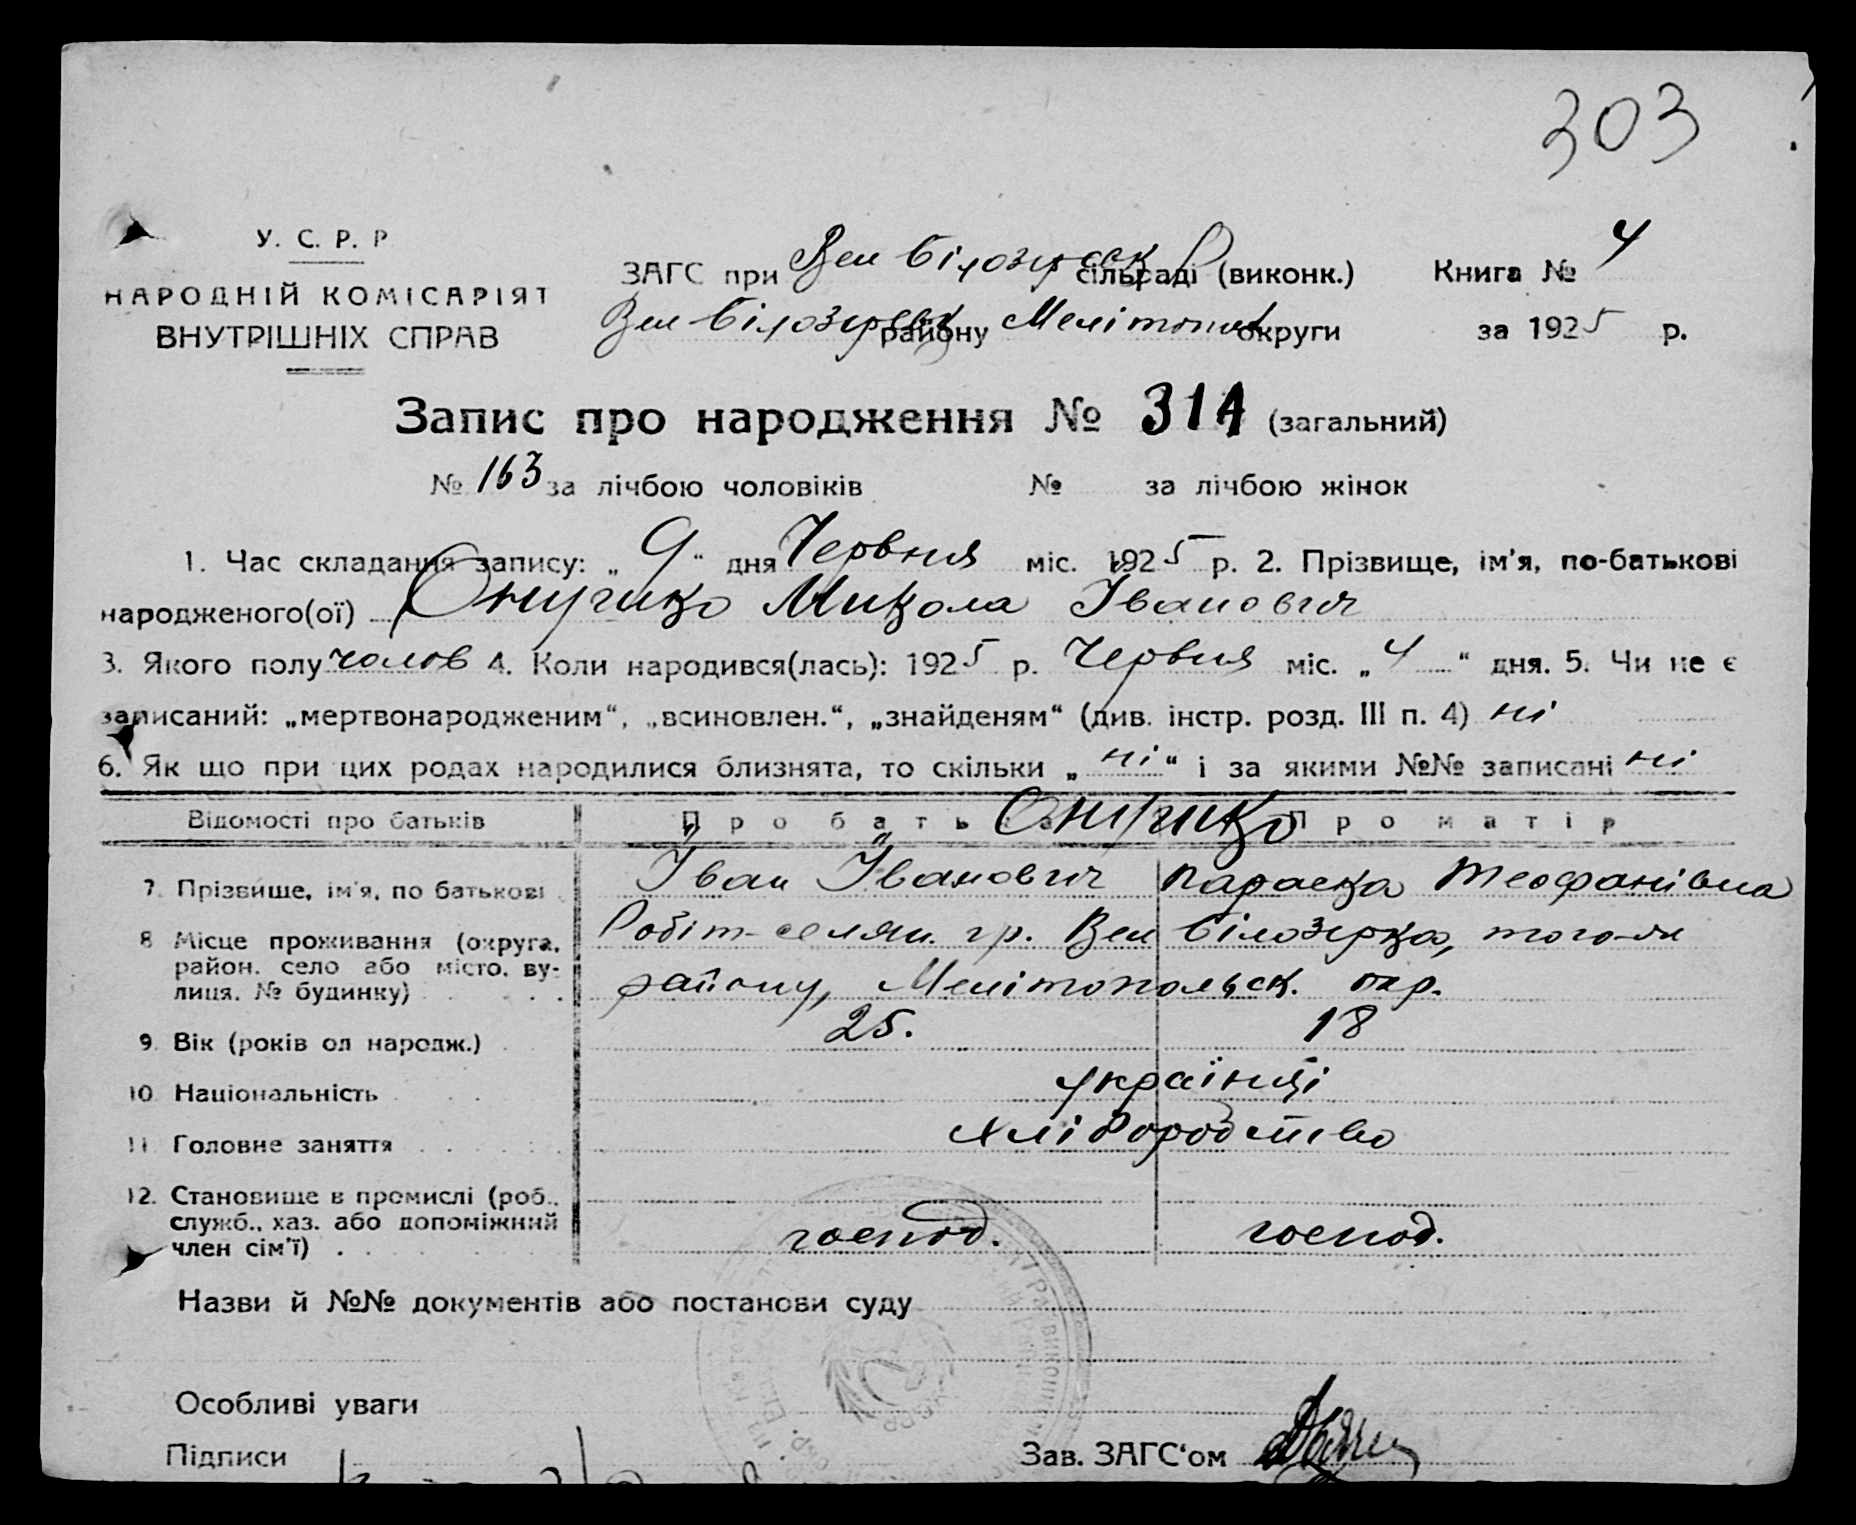 303
У. С. Р. Р
НАРОДНІЙ КОМІСАРІЯТ
ВНУТРІШНІХ СПРАВ
ЗАГС при Вел Білозерск сільраді (виконк.) Книга № 4
Вел Білозерск району Мелітопол округи за 1925 р.
Запис про народження № 314 (загальний)
№ 163 за лічбою чоловіків № за лічбою жінок
1. Час складання запису: „ 9 “ дня Червня міс. 1925 р. 2. Прізвище, ім'я, по-батькові
народженого(ої) Онушко Микола Іванович
3. Якого полу чолов 4. Коли народився(лась): 1925 р. Червня міс. „ 4 “ дня. 5. Чи не є
записаний: „мертвонародженим“, „всиновлен.“, „знайденям“ (див. інстр. розд. III п. 4) ні
6. Як що при цих родах народилися близнята, то скільки „ ні “ і за якими №№ записані ні
Відомості про батьків Про батька Онушко Про матір
7. Прізвище, ім'я, по батькові Іван Іванович Параска Теофанівна
8. Місце проживання (округа, район, село або місто, вулиця, № будинку) Робіт-селян. гр. Вел Білозерка, того-ж
району, Мелітопольск. окр.
9. Вік (років од народж.) 25. 18
10. Національність українці
11. Головне заняття хліборобство
12. Становище в промислі (роб., служб., хаз. або допоміжний член сім'ї) господ. господ.
Назви й №№ документів або постанови суду
Особливі уваги
Підписи Зав. ЗАГС'ом